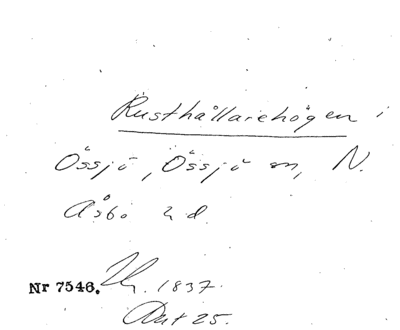 Rusthållarehögen i
Össjö, Össjö sn, N.
Åsbo hd.
Nr 7546. 1837.
25.